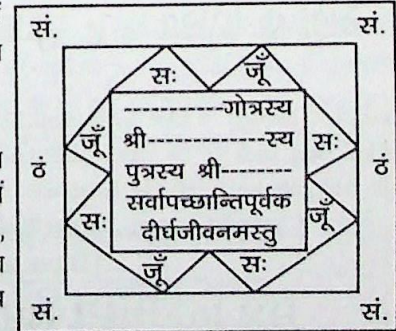 सं. सं.
सः जूँ
------------गोत्रस्य
जूँ श्री--------------स्य सः
ठं पुत्रस्य श्री-------- ठं
सर्वापच्छान्तिपूर्वक
सः दीर्घजीवनमस्तु जूँ
जूँ सः
सं. सं.